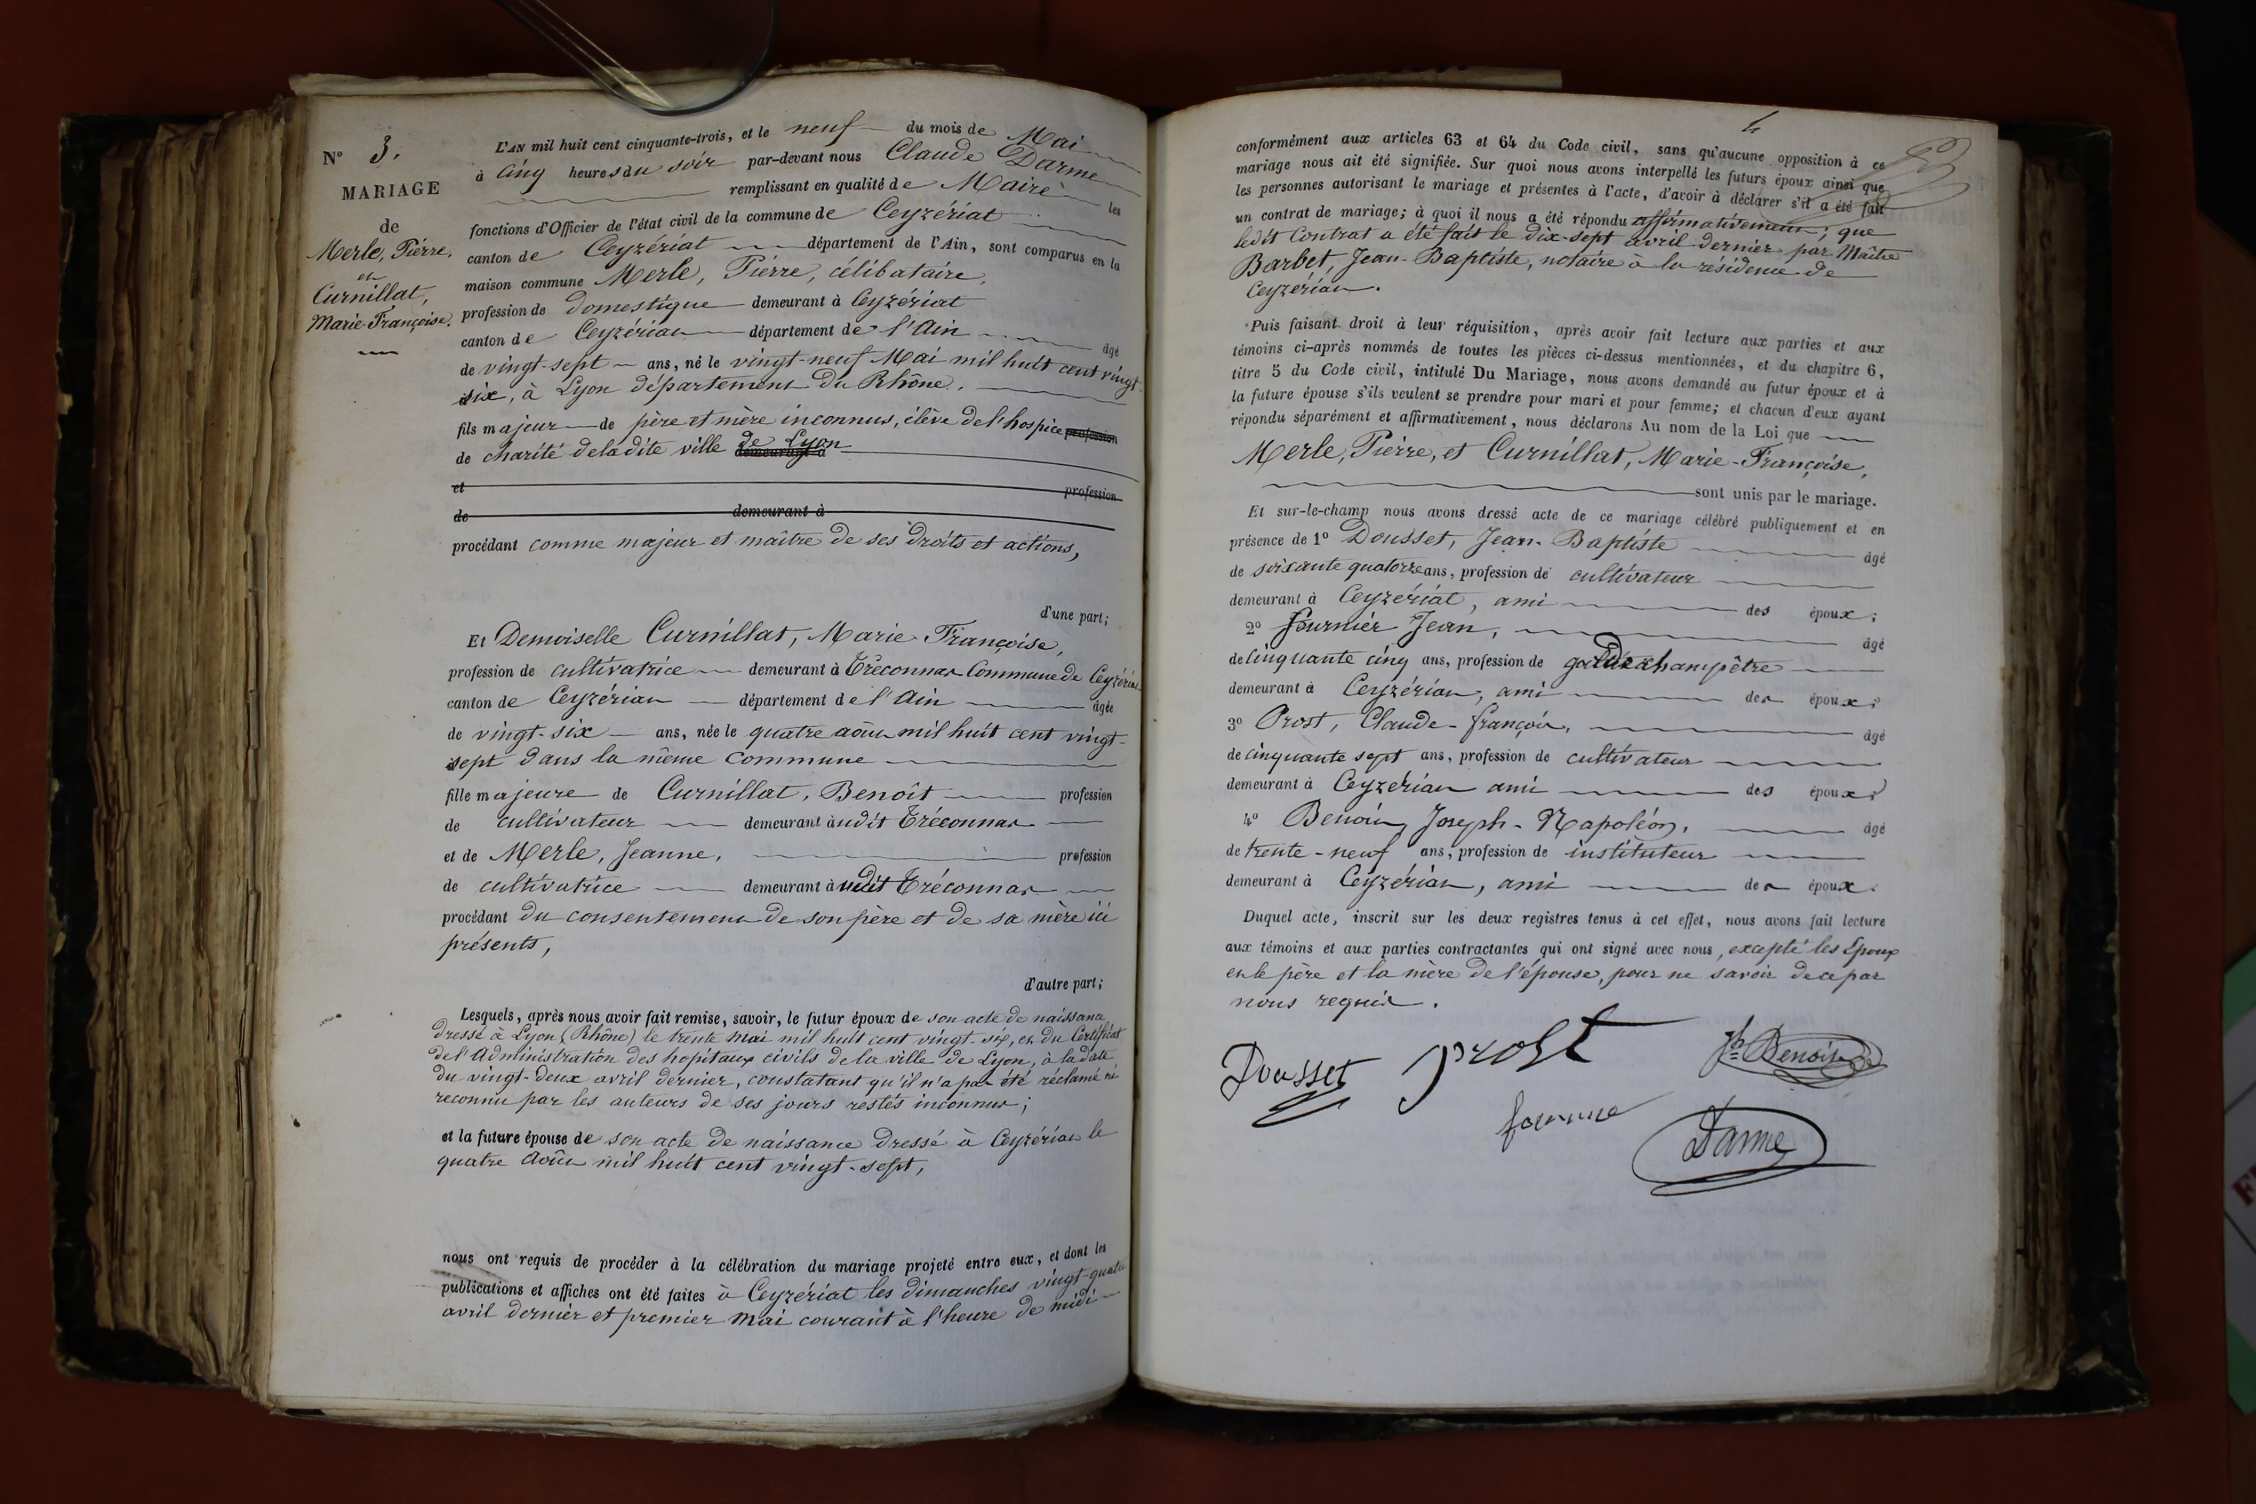 N° 3.
MARIAGE
de
Merle, Pierre,
et
Curnillat,
Marie-Françoise.
L'AN mil huit cent cinquante-trois, et le neuf du mois de Mai
à cinq heures du soir par-devant nous Claude Darme
remplissant en qualité de Maire les
fonctions d'Officier de l'état civil de la commune de Ceyzériat
canton de Ceyzériat département de l'Ain, sont comparus en la
maison commune Merle, Pierre, célibataire,
profession de domestique demeurant à Ceyzériat
canton de Ceyzériat département de l'Ain âgé
de vingt-sept ans, né le vingt-neuf Mai mil huit cent vingt-
six, à Lyon département du Rhône.
fils majeur de père et mère inconnus, élève de l'hospice profession
de charité de ladite ville de Lyon demeurant à
et profession
de demeurant à
procédant comme majeur et maître de ses droits et actions,
d'une part;
Et Demoiselle Curnillat, Marie-Françoise,
profession de cultivatrice demeurant à Tréconnas Commune de Ceyzériat
canton de Ceyzériat département de l'Ain âgée
de vingt-six ans, née le quatre août mil huit cent vingt-
sept dans la même commune
fille majeure de Curnillat, Benoît profession
de cultivateur demeurant àudit Tréconnas
et de Merle, Jeanne, profession
de cultivatrice demeurant àudit Tréconnas
procédant du consentement de son père et de sa mère ici
présents,
d'autre part;
Lesquels, après nous avoir fait remise, savoir, le futur époux de son acte de naissance
dressé à Lyon (Rhône) le trente Mai mil huit cent vingt-six, et du Certificat
de l'Administration des hopitaux civils de la ville de Lyon, à la date
du vingt-deux avril dernier, constatant qu'il n'a pas été réclamé ni
reconnu par les auteurs de ses jours restés inconnus;
et la future épouse de son acte de naissance dressé à Ceyzériat le
quatre Août mil huit cent vingt-sept,
nous ont requis de procéder à la célébration du mariage projeté entre eux, et dont les
publications et affiches ont été faites à Ceyzériat les dimanches vingt-quatre
avril dernier et premier Mai courant à l'heure de midi
4
conformément aux articles 63 et 64 du Code civil, sans qu'aucune opposition à ce
mariage nous ait été signifiée. Sur quoi nous avons interpellé les futurs époux ainsi que
les personnes autorisant le mariage et présentes à l'acte, d'avoir à déclarer s'il a été fait
un contrat de mariage; à quoi il nous a été répondu affirmativement; que
ledit Contrat a été fait le dix-sept avril dernier par Maître
Barbet, Jean-Baptiste, notaire à la résidence de
Ceyzériat.
Puis faisant droit à leur réquisition, après avoir fait lecture aux parties et aux
témoins ci-après nommés de toutes les pièces ci-dessus mentionnées, et du chapitre 6,
titre 5 du Code civil, intitulé Du Mariage, nous avons demandé au futur époux et à
la future épouse s'ils veulent se prendre pour mari et pour femme; et chacun d'eux ayant
répondu séparément et affirmativement, nous déclarons Au nom de la Loi que
Merle, Pierre, et Curnillat, Marie-Françoise,
sont unis par le mariage.
Et sur-le-champ nous avons dressé acte de ce mariage célébré publiquement et en
présence de 1° Dousset, Jean-Baptiste âgé
de soixante quatorze ans, profession de cultivateur
demeurant à Ceyzériat, ami des époux;
2° Fournier Jean, âgé
de cinquante cinq ans, profession de garde champêtre
demeurant à Ceyzériat, ami des époux;
3° Prost, Claude-François, âgé
de cinquante sept ans, profession de cultivateur
demeurant à Ceyzériat ami des époux;
4° Benoit, Joseph-Napoléon, âgé
de trente-neuf ans, profession de instituteur
demeurant à Ceyzériat, ami des époux.
Duquel acte, inscrit sur les deux registres tenus à cet effet, nous avons fait lecture
aux témoins et aux parties contractantes qui ont signé avec nous, excepté les Epoux
et le père et la mère de l'épouse, pour ne savoir de ce par
nous requis.
Dousset prost Jh Benoit
Darme